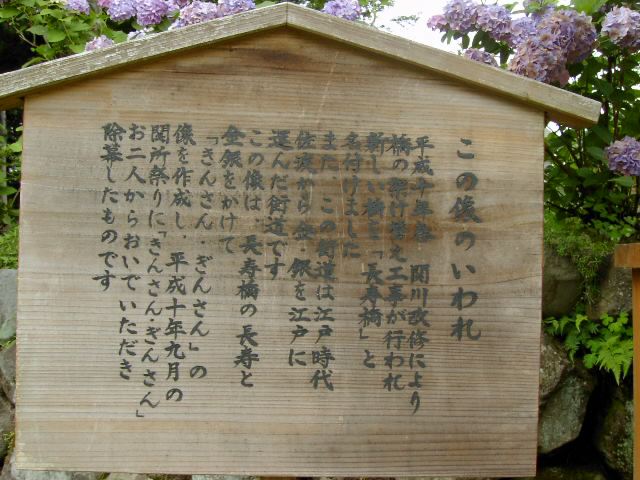 この像のいわれ
平成十年春 関川改修により
橋の架け替え工事が行われ
新しい橋を「長寿橋」と
名付けました
また、この街道は江戸時代
佐渡から金・銀を江戸に
運んだ街道です
この像は、長寿橋の長寿と
金銀をかけて
「きんさん・ぎんさん」の
像を作成し、平成十年九月の
関所祭りに「きんさん・ぎんさん」
お二人からおいでいただき
除幕したものです